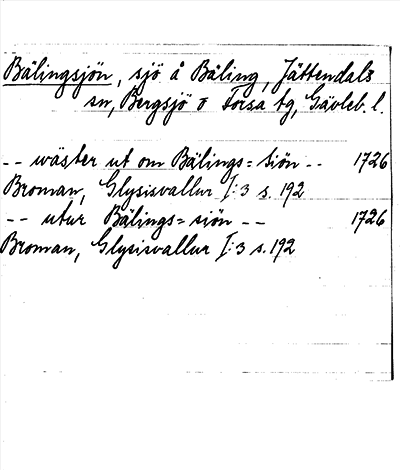 Bälingsjön, sjö å Bäling, Jättendals
sn, Bergsjö o Forsa tg, Gävleb. l.
-- wäster ut om Bälings=siön -- 1726
Broman, Glysisvallur I:3 s. 192
-- utur Bälings=siön -- 1726
Broman, Glysisvallur I:3 s. 192